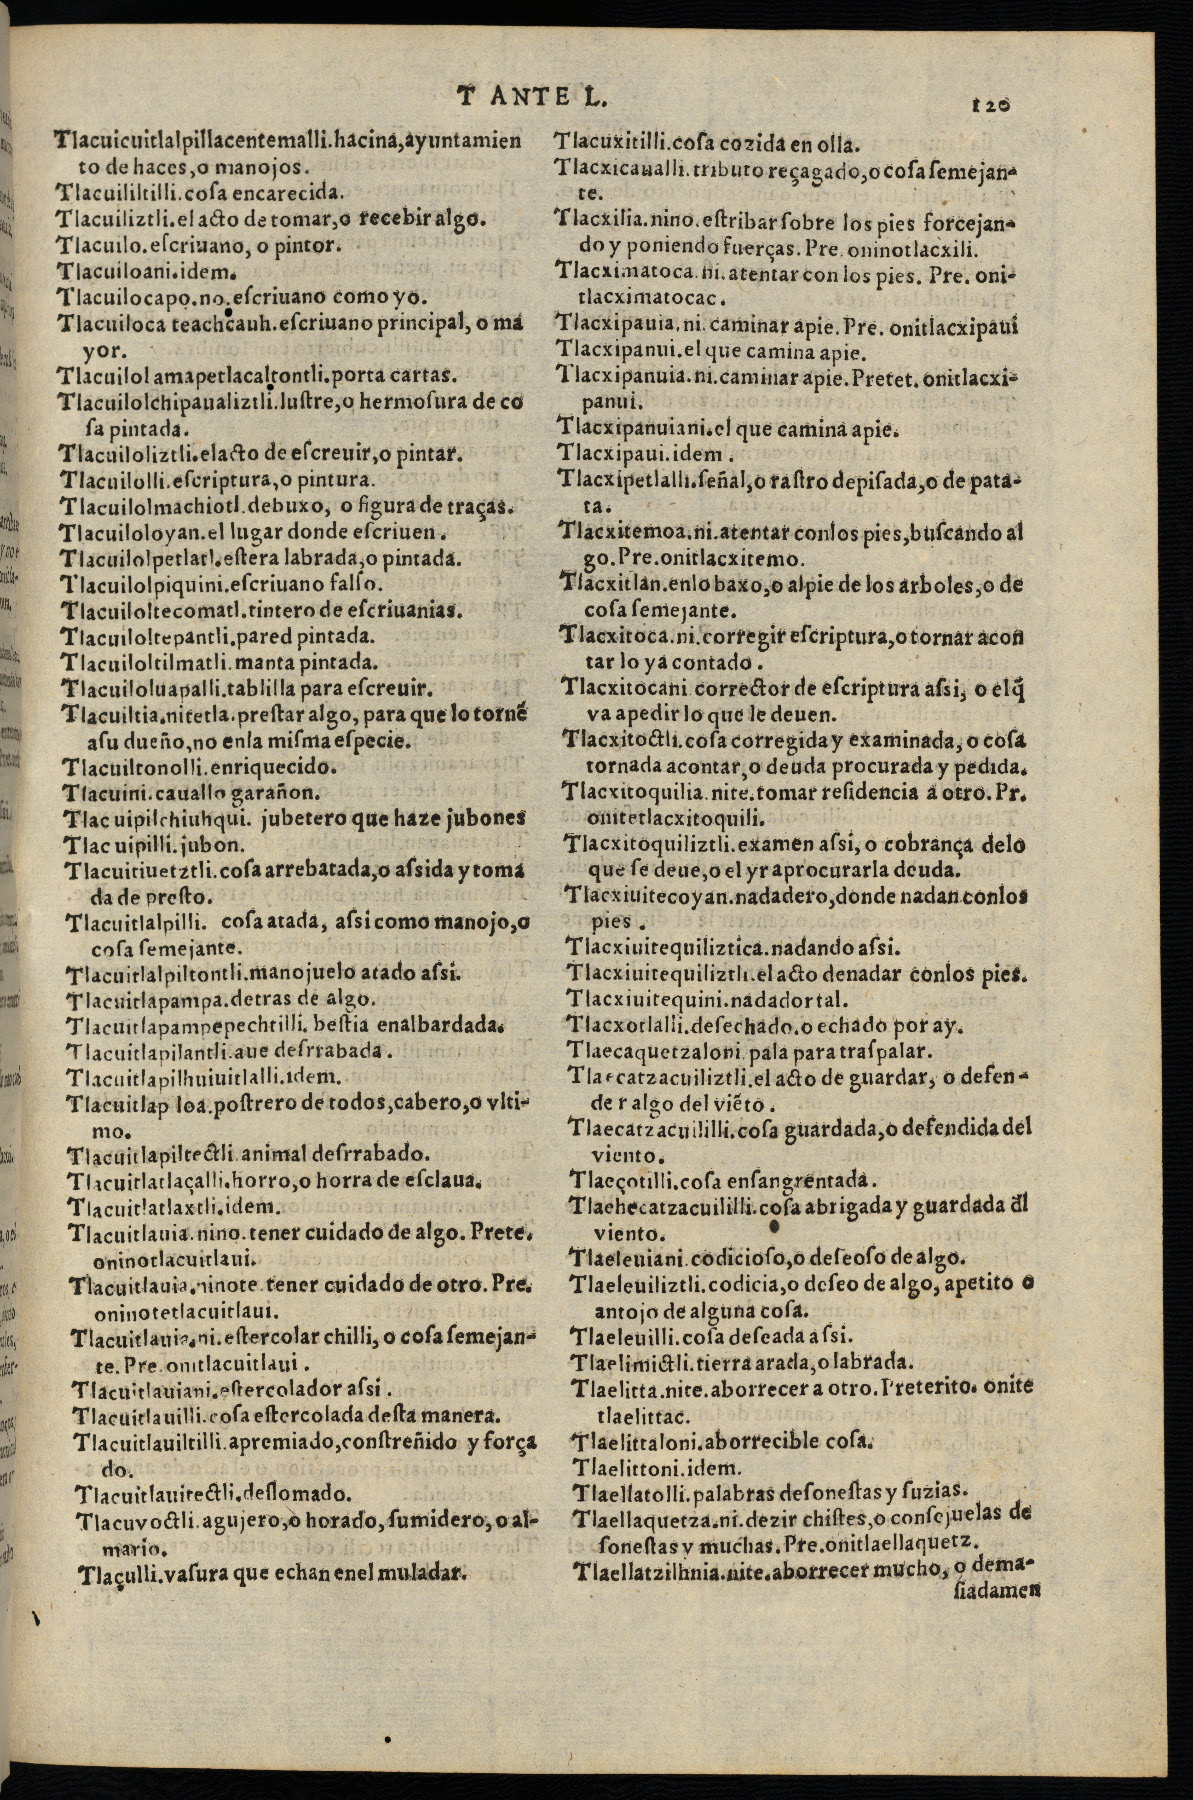 T ANTE L.
120
Tlacuicuitlalpillacentemalli.hacina,ayuntamien
to de haces,o manojos.
Tlacuililtilli.cosa encarecida.
Tlacuiliztli.el acto de tomar,o recebir algo.
Tlacuilo.escriuano, o pintor.
Tlacuiloani.idem.
Tlacuilocapo.no.escriuano como yo.
Tlacuiloca teachcauh.escriuano principal, o ma
yor.
Tlacuilol amapetlacaltontli.porta cartas.
Tlacuilolchipaualiztli.lustre,o hermosura de co
sa pintada.
Tlacuiloliztli.el acto de escreuir,o pintar.
Tlacuilolli.escriptura,o pintura.
Tlacuilolmachiotl.debuxo, o figura de traças.
Tlacuiloloyan.el lugar donde escriuen.
Tlacuilolpetlatl.estera labrada,o pintada.
Tlacuilolpiquini.escriuano falso.
Tlacuiloltecomatl.tintero de escriuanias.
Tlacuiloltepantli.pared pintada.
Tlacuiloltilmatli.manta pintada.
Tlacuiloluapalli.tablilla para escreuir.
Tlacuiltia.nitetla.prestar algo, para que lo tornẽ
asu dueño,no enla misma especie.
Tlacuiltonolli.enriquecido.
Tlacuini.cauallo garañon.
Tlac uipilchiuhqui. jubetero que haze jubones
Tlac uipilli.jubon.
Tlacuitiuetztli.cosa arrebatada,o assida y toma
da de presto.
Tlacuitlalpilli. cosa atada, assi como manojo,o
cosa semejante.
Tlacuitlalpiltontli.manojuelo atado assi.
Tlacuitlapampa.detras de algo.
Tlacuitlapampepechtilli. bestia enalbardada.
Tlacuitlapilantli.aue desrrabada.
Tlacuitlapilhuiuitlalli.idem.
Tlacuitlap loa.postrero de todos,cabero,o vlti-
mo.
Tlacuitlapiltectli.animal desrrabado.
Tlacuitlatlaçalli.horro,o horra de esclaua.
Tlacuitlatlaxtli.idem.
Tlacuitlauia.nino.tener cuidado de algo. Prete.
oninotlacuitlaui.
Tlacuitlauia.ninote.tener cuidado de otro. Pre.
oninotetlacuitlaui.
Tlacuitlauia.ni.estercolar chilli, o cosa semejan-
te. Pre.onitlacuitlaui.
Tlacuitlauiani.estercolador assi.
Tlacuitlauilli.cosa estercolada desta manera.
Tlacuitlauiltilli.apremiado,constreñido y força
do.
Tlacuitlauitectli.deslomado.
Tlacuvoctli.agujero,o horado, sumidero, o al-
mario.
Tlaçulli.vasura que echan enel muladar.
Tlacuxitilli.cosa cozida en olla.
Tlacxicaualli.tributo reçagado,o cosa semejan-
te.
Tlacxilia.nino.estribar sobre los pies forcejan-
do y poniendo fuerças. Pre.oninotlacxili.
Tlacximatoca.ni.atentar con los pies. Pre. oni-
tlacximatocac.
Tlacxipauia.ni.caminar apie.Pre. onitlacxipaui
Tlacxipanui.el que camina apie.
Tlacxipanuia.ni.caminar apie.Pretet. onitlacxi-
panui.
Tlacxipanuiani.el que camina apie.
Tlacxipaui.idem.
Tlacxipetlalli.señal,o rastro de pisada,o de pata-
ta.
Tlacxitemoa.ni.atentar conlos pies,buscando al
go. Pre.onitlacxitemo.
Tlacxitlan.enlo baxo,o alpie de los arboles,o de
cosa semejante.
Tlacxitoca.ni.corregir escriptura,o tornar acon
tar lo ya contado.
Tlacxitocani corrector de escriptura assi, o elq̃
va apedir lo que le deuen.
Tlacxitoctli.cosa corregida y examinada, o cosa
tornada acontar,o deuda procurada y pedida.
Tlacxitoquilia.nite.tomar residencia a otro. Pr.
onitetlacxitoquili.
Tlacxitoquiliztli.examen assi, o cobrança delo
que se deue,o el yr aprocurarla deuda.
Tlacxiuitecoyan.nadadero,donde nadan conlos
pies.
Tlacxiuitequiliztica.nadando assi.
Tlacxiuitequiliztli.el acto denadar conlos pies.
Tlacxiuitequini.nadador tal.
Tlacxotlalli.desechado.o echado por ay.
Tlaecaquetzaloni.pala para traspalar.
Tlaecatzacuiliztli.el acto de guardar, o defen-
de r algo del viẽto.
Tlaecatzacuililli.cosa guardada,o defendida del
viento.
Tlaeçotilli.cosa ensangrentada.
Tlaehecatzacuililli.cosa abrigada y guardada dl
viento.
Tlaeleuiani.codicioso,o deseoso de algo.
Tlaeleuiliztli.codicia,o deseo de algo, apetito o
antojo de alguna cosa.
Tlaeleuilli.cosa deseada assi.
Tlaelimictli.tierra arada,o labrada.
Tlaelitta.nite.aborrecer a otro. Preterito. onite
tlaelittac.
Tlaelittaloni.aborrecible cosa.
Tlaelittoni.idem.
Tlaellatolli.palabras desonestas y suzias.
Tlaellaquetza.ni.dezir chistes,o consejuelas de
sonestas y muchas. Pre.onitlaellaquetz.
Tlaellatzilhnia.nite.aborrecer mucho, o dema-
siadamen